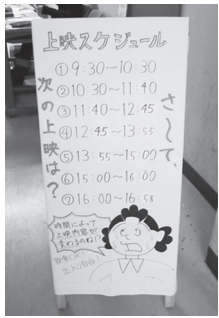 上映スケジュール
① 9:30～10:30
② 10:30～11:40
③ 11:40～12:45
④ 12:45～13:55
⑤ 13:55～15:00
⑥ 15:00～16:00
⑦ 16:00～16:58
さ～て、
次の上映は？
時間によって
上映内容が
変わるのね!!
出入り自由!